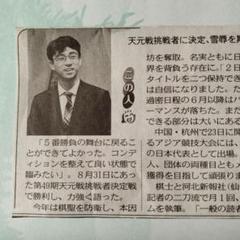 天元戦挑戦者に決定、雪辱を
この人
「5番勝負の舞台に戻る
ことができてよかった。コン
ディションを整えて良い状態で
臨みたい」。8月31日にあっ
た第49期天元戦挑戦者決定戦
で勝利し、力強く語った。
今年は棋聖を防衛し、本因
坊を奪取。名実ともに日
界を背負う存在に。「2日
タイトルを二つ保持でき
は自信になりました」。
過密日程の6月以降は
ーマンスが落ちた。ま
できる部分は大いにある
中国・杭州で23日に開
るアジア競技大会には、
の日本代表として出場。
人、団体の両種目とも
獲得を目指して頑張り
棋士と河北新報社(仙
記者の二刀流で月1回
ムを執筆。「一般の読者